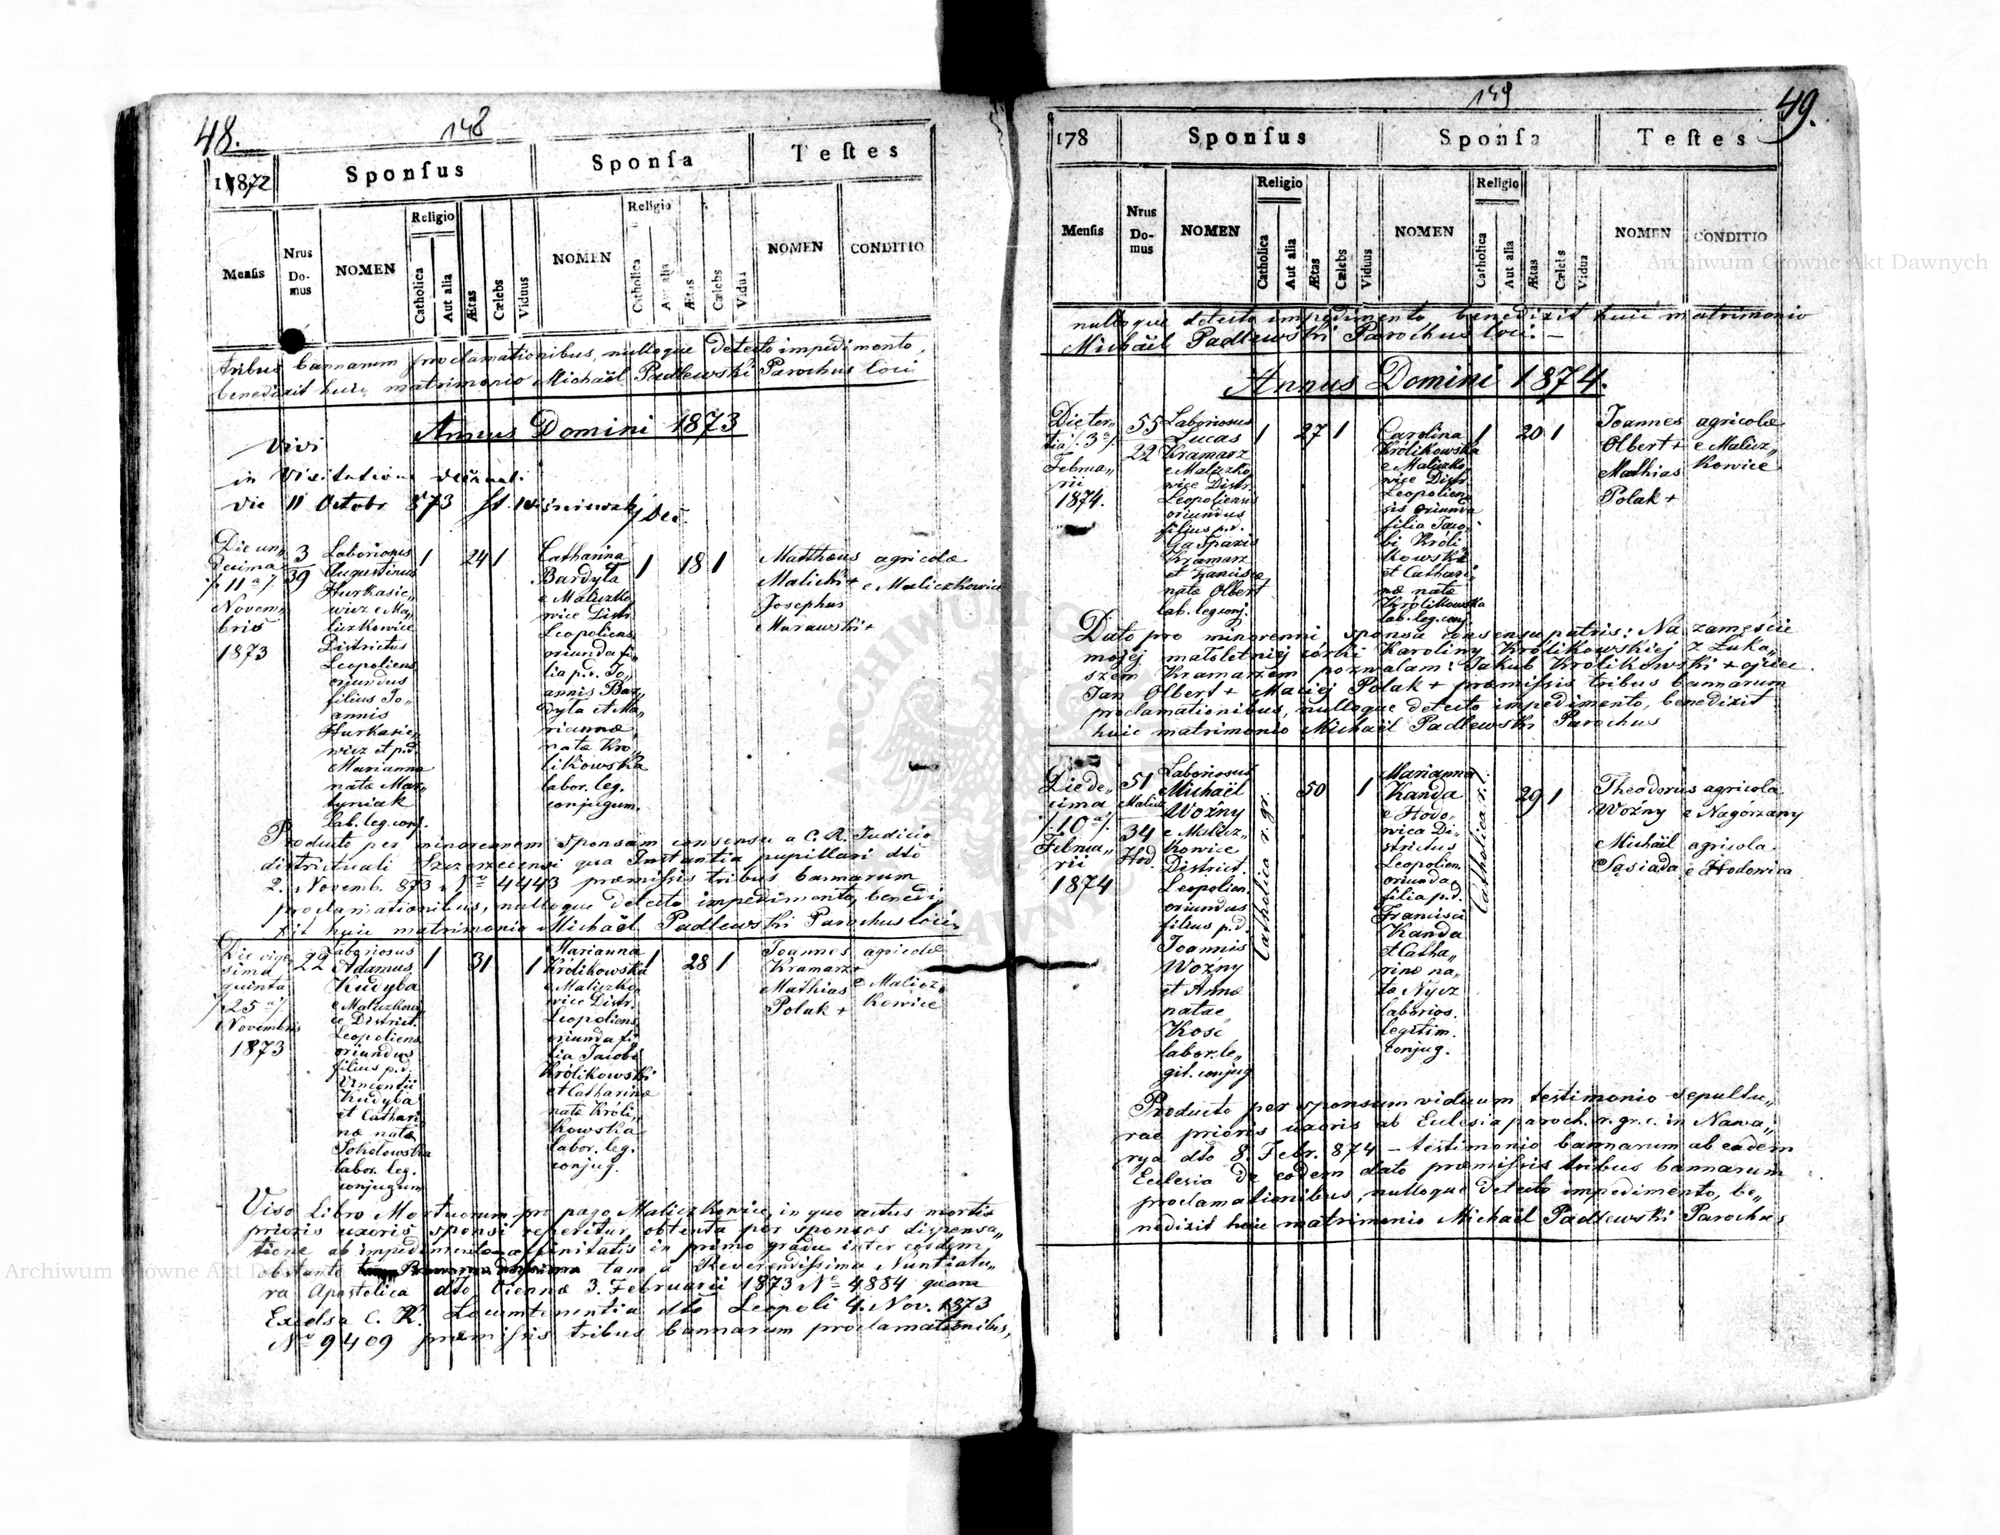 48.
148
Sponsus
Sponsa
Testes
1872
Religio
Religio
Mensis
Nrus Domus
NOMEN
Catholica
Aut alia
Ætas
Cælebs
Viduus
NOMEN
Catholica
Aut alia
Ætas
Cælebs
Vidua
NOMEN
CONDITIO
tribus bannarum proclamationibus, nulloque detecto impedimento,
benedixit huic matrimonio Michaël Padlewski Parochus loci
Annus Domini 1873
Vivi
in Visitatione
die 11 Octobr 873
Die un„
decima
/: 11 a :/
Novem„
bris
1873
3
39
Laboriosus
Augustinus
Hurkasie„
wicz e Ma„
liczkowice
Districtus
Leopoliens
oriundus
filius Jo„
annis
Hurkasie„
wicz et p.d.
Marianna
nata Mar„
tyniak
lab. leg. conj.
1
24
1
Catharina
Bardyla
e Maliczko„
wice Distr.
Leopoliens.
oriunda fi„
lia p.d. Jo„
annis Bar„
dyla et Ma„
riannæ
nata Kró„
likowska
labor. leg.
conjugum.
1
18
1
Matthæus agricolæ
Malicki + e Maliczkowice
Josephus
Marawski +
Producto per minorennem sponsam consensu a C. R. Judicio
districtuali Szczerzecensi qua Instantia pupillari dto
2. Novemb. 873 No 4443 præmissis tribus bannarum
proclamationibus, nulloque detecto impedimento, benedi„
xit huic matrimonio Michaël Padlewski Parochus loci.
Die vige„
sima
quinta
/: 25 a :/
Novembris
1873
22
Laboriosus
Adamus
Kudyba
e Maliczkowi„
ce District.
Leopoliens.
oriundus
filius p.d.
Vincentii
Kudyba
et Cathari„
næ nata
Sokołowska
labor. leg.
conjugum
1
31
1
Marianna
Królikowska
e Maliczko„
wice Distr.
Leopoliens
oriunda fi„
lia Jacobi
Królikowski
et Catharinæ
nata Króli„
kowska
labor. leg.
conjug.
1
28
1
Joannes agricolæ
Kramarz +
Mathias e Malicz„
Polak + kowice
Viso Libro Mortuorum pro pago Maliczkowice, in quo actus mortis
prioris uxoris sponsi reperitur, obtenta per sponsos dispensa„
tione ab impedimento affinitatis in primo gradu inter eosdem
obstante tam a Reverendissima Nuntiatu„
ra Apostolica dto Viennæ 3. Februarii 1873 No 4884 quam
Excelsa C. R. Locumtenentia dto Leopoli 4. Nov. 1873
No 9409 præmissis tribus bannarum proclamationibus,
49.
149
178
Sponsus
Sponsa
Testes
Religio
Religio
Mensis
Nrus Domus
NOMEN
Catholica
Aut alia
Ætas
Cælebs
Viduus
NOMEN
Catholica
Aut alia
Ætas
Cælebs
Vidua
NOMEN
CONDITIO
nulloque detecto impedimento benedixit huic matrimonio
Michaël Padlewski Parochus loci. —
Annus Domini 1874.
Die ter„
tia /: 3 a :/
Februa„
rii
1874.
55
22
Laboriosus
Lucas
Kramarz
e Maliczko„
wice Distr.
Leopoliensis
oriundus
filius p.d.
Gasparis
Kramarz
et Franciscæ
nata Olbert
lab. leg. conj.
1
27
1
Carolina
Królikowska
e Maliczko„
wice Distr.
Leopolien„
sis oriunda
filia Jaco„
bi Króli„
kowski
et Cathari„
næ nata
Królikowska
lab. leg. conj.
1
20
1
Joannes agricolæ
Olbert + e Malicz„
Mathias kowice
Polak +
Dato pro minorenni sponsa consensu patris: Na zamęście
mojej małoletniej córki Karoliny Królikowskiej z Łuka„
szem Kramarzem pozwalam: Jakub Królikowski + ojciec
Jan Olbert + Maciej Polak + præmissis tribus bannarum
proclamationibus, nulloque detecto impedimento, benedixit
huic matrimonio Michaël Padlewski Parochus
Die de„
cima
/: 10 a :/
Februa„
rii
1874
51
Malicz
34
Hod.
Laboriosus
Michaël
Woźny
e Malicz„
kowice
District.
Leopolien.
oriundus
filius p.d.
Joannis
Woźny
et Annæ
natae
Kość
labor. le„
git. conjug
Catholica r. gr.
50
1
Marianna
Kanda
e Hodo„
wica Di„
strictus
Leopolien.
oriunda
filia p.d.
Francisci
Kanda
et Catha„
rinæ na„
ta Nycz
laborios.
legitim.
conjug.
Catholica r. l.
29
1
Theodorus agricola
Woźny e Nagórzany
Michaël agricola
Sąsiada e Hodowica
Producto per sponsum viduum testimonio sepultu„
rae prioris uxoris ab Eclesia paroch. r. gr. c. in Nawa„
rya dto 8. Febr. 874 — testimonio bannarum ab eadem
Eclesia de eodem dato præmissis tribus bannarum
proclamationibus, nulloque detecto impedimento, be„
nedixit huic matrimonio Michaël Padlewski Parochus
Archiwum Główne Akt Dawnych
Archiwum Główne Akt Dawnych